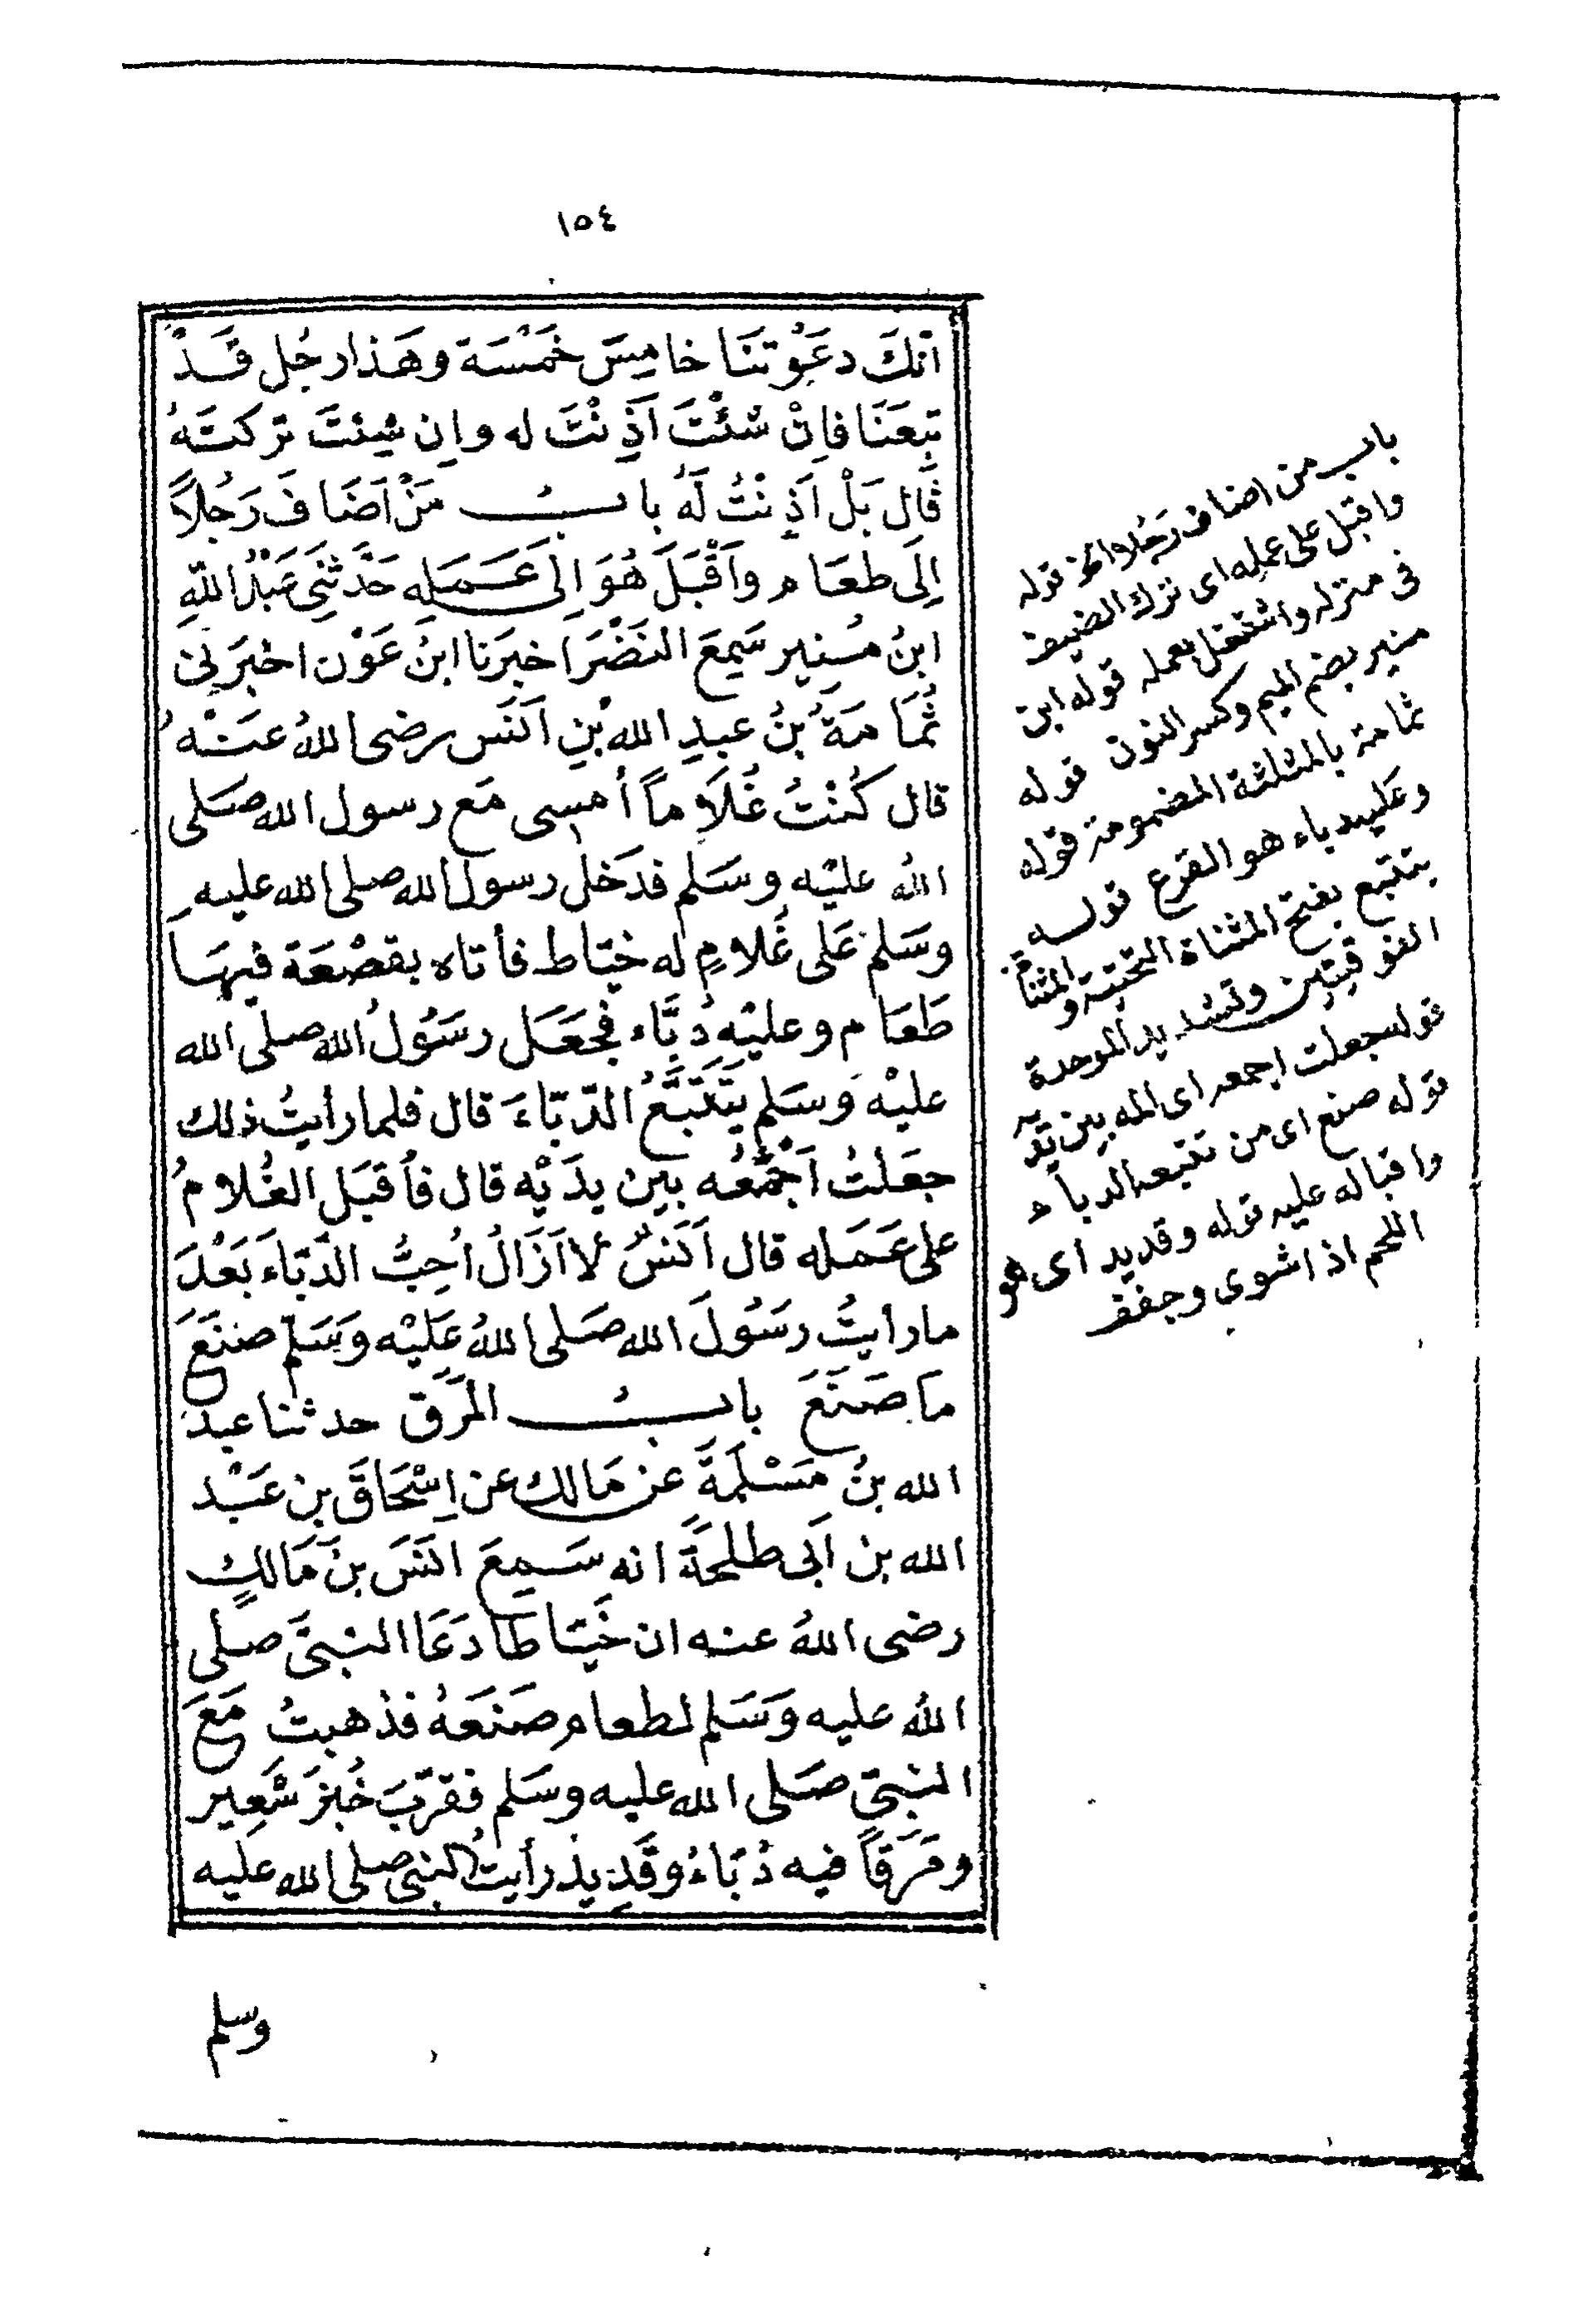 ١٥٤
اَنكَ دعَوْتنَا خامِسَ خمْسَة وهَذا رجُل قَدْ
تبِعَنَا فاِنْ شئْتَ اَذِنْتَ له وان شِئتَ تركتَهُ
قَال بَلْ اَذِنْتُ لَهُ بابُ مَنْ اَضَافَ رَجُلاً
اِلَى طعَام واَقْبَلَ هُوَ اِلَى عَمَلِهِ حَدَّثَنِى عَبْدُ اللهِ
ابنُ مُنِير سَمِعَ النَضْرَ اخبَرَنا ابنُ عَوْن اخبَرَنِى
ثُمَامَةُ بنُ عبدِ الله بْنِ اَنَس رضى اللهُ عَنْهُ
قال كُنْتُ غُلَاماً أمشى مَع رسول الله صَلى
اللهُ عليْه وسَلم فدَخل رسولُ الله صلى الله عليه
وسَلم عَلى غُلامٍ له خيّاط فأتاه بقصْعَة فيهَا
طَعَام وعليْه دُبَّاء فجعَلَ رسَوُلُ الله صلى الله
عليْه وَسَلم يتَتَبَّعُ الدّبّاءَ قال فلما رأيتُ ذلك
جعَلتُ اَجْمَعُه بين يدَيْه قال فأقبَل الغُلامُ
على عَمَله قال اَنَسٌ لا اَزَالُ اُحِبُّ الدّبّاءَ بَعْدَ
ما رأيتُ رسَوُلَ الله صَلى اللهُ عَلَيْه وَسَلّم صنَعَ
مَا صَنَعَ بابُ المَرَق حدثنا عبد
الله بنُ مَسْلَمَةَ عن مَالك عن اِسْحَاقَ بن عَبْد
الله بن اَبى طلحَةَ انه سَمِعَ انَسَ بنَ مَالكٍ
رضى اللهُ عنه ان خَيّاطاً دَعَا النبىَّ صلى
اللهُ عليه وَسَلم لطعام صَنَعَهُ فذهبتُ مَعَ
النبىّ صَلى الله عليه وسَلم فقرّبَ خُبزَ شَعِير
ومَرَقاً فيه دُبّاءُ وقَدِيد رأيتُ النبى صلى الله عليه
وسلم
باب من اضاف رَجُلا الخ قوله
واقبل على عمله اى ترك الضيف
فى منزله واشتغل بعمله قوله ابن
منير بضم الميم وكسر النون قوله
ثمامة بالمثلثة المضمومة قوله
وعليه دباء هو القرع قوله
يتتبع بفتح المثناة التحتية والمثناة
الفوقيتين وتشديد الموحدة
قوله جعلت اجمعه اى المه بين يديه
قوله صنع اى من تتبعه الدباء
واقباله عليه قوله وقديد اى هو
اللحم اذا شوى وجفف